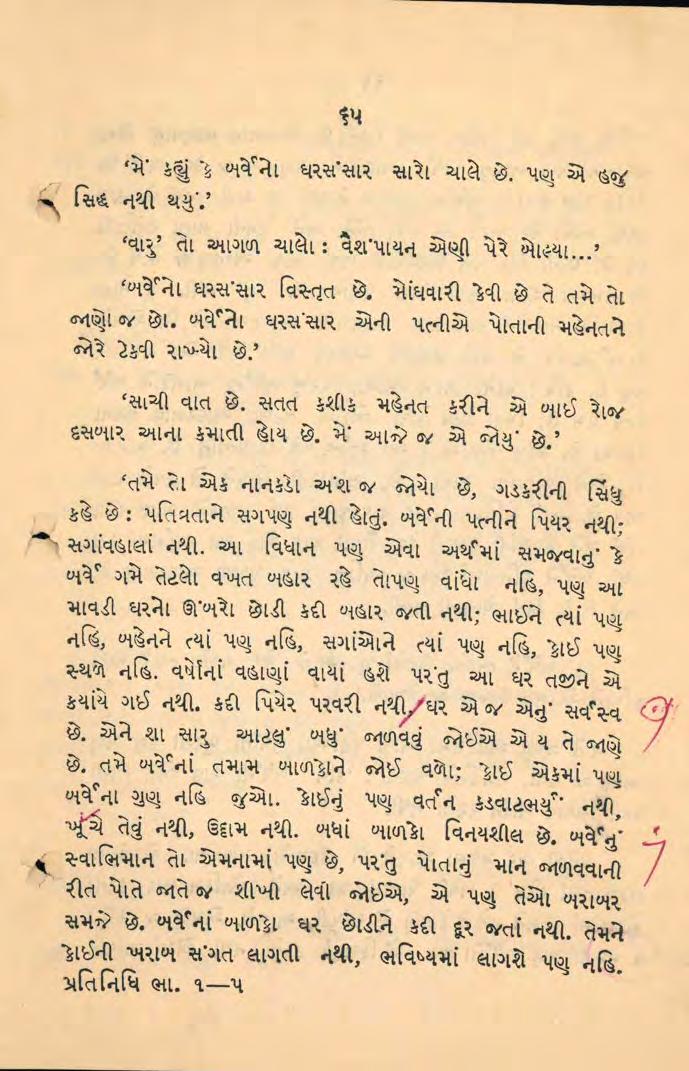 ૬૫
‘મેં કહ્યું કે બર્વેનો ઘરસંસાર સારો ચાલે છે. પણ એ હજુ
સિદ્ધ નથી થયું.’
‘વારુ’ તો આગળ ચાલો : વૈશંપાયન એણી પેરે બોલ્યા...’
‘બર્વેનો ઘરસંસાર વિસ્તૃત છે. મોંઘવારી કેવી છે તે તમે તો
જાણો જ છો. બર્વેનો ઘરસંસાર એની પત્નીએ પોતાની મહેનતને
જોરે ટેકવી રાખ્યો છે.’
‘સાચી વાત છે. સતત કશીક મહેનત કરીને એ બાઈ રોજ
દસબાર આના કમાતી હોય છે. મેં આજે જ એ જોયું છે.’
‘તમે તો એક નાનકડો અંશ જ જોયો છે, ગડકરીની સિંધુ
કહે છે : પતિવ્રતાને સગપણ નથી હોતું. બર્વેની પત્નીને પિયર નથી;
સગાંવહાલાં નથી. આ વિધાન પણ એવા અર્થમાં સમજવાનું કે
બર્વે ગમે તેટલો વખત બહાર રહે તોપણ વાંધો નહિ, પણ આ
માવડી ઘરનો ઊંબરો છોડી કદી બહાર જતી નથી; ભાઈને ત્યાં પણ
નહિ, બહેનને ત્યાં પણ નહિ, સગાંઓને ત્યાં પણ નહિ, કોઈ પણ
સ્થળે નહિ. વર્ષોનાં વહાણાં વાયાં હશે પરંતુ આ ઘર તજીને એ
કયાંયે ગઈ નથી. કદી પિયેર પરવરી નથી, ઘર એ જ એનું સર્વસ્વ
છે. એને શા સારુ આટલું બધું જાળવવું જોઈએ એ ય તે જાણે
છે. તમે બર્વેનાં તમામ બાળકોને જોઈ વળો; કોઈ એકમાં પણ
બર્વેના ગુણ નહિ જુઓ. કોઈનું પણ વર્તન કડવાટભર્યું નથી,
ખૂંચે તેવું નથી, ઉદ્દામ નથી. બધાં બાળકો વિનયશીલ છે. બર્વેનું
સ્વાભિમાન તો એમનામાં પણ છે, પરંતુ પોતાનું માન જાળવવાની
રીત પોતે જાતે જ શીખી લેવી જોઈએ, એ પણ તેઓ બરાબર
સમજે છે. બર્વેનાં બાળકો ઘર છોડીને કદી દૂર જતાં નથી. તેમને
કોઈની ખરાબ સંગત લાગતી નથી, ભવિષ્યમાં લાગશે પણ નહિ.
પ્રતિનિધિ ભા. ૧—૫